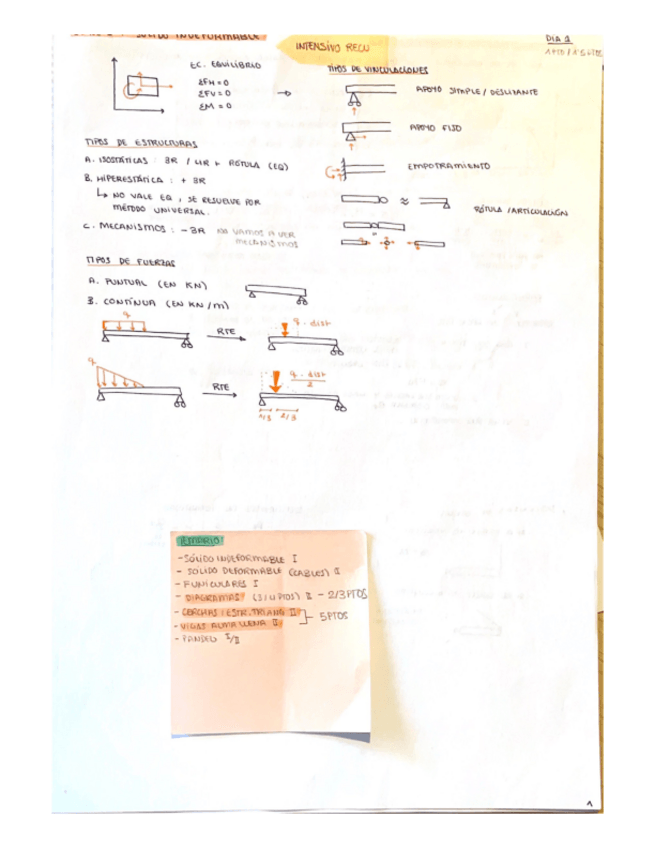 SÓLIDO INDEFORMABLE
INTENSIVO RECU
DÍA 1
EC. EQUILIBRIO
ΣFH = 0
ΣFV = 0
ΣM = 0
TIPOS DE VINCULACIONES
APOYO SIMPLE / DESLIZANTE
APOYO FIJO
EMPOTRAMIENTO
≈
RÓTULA / ARTICULACIÓN
TIPOS DE ESTRUCTURAS
A. ISOSTÁTICAS : 3R / 4R + RÓTULA (EQ)
B. HIPERESTÁTICA : + 3R
↳ NO VALE EQ , SE RESUELVE POR
MÉTODO UNIVERSAL.
C. MECANISMOS : - 3R NO VAMOS A VER
MECANISMOS
TIPOS DE FUERZAS
A. PUNTUAL (EN KN)
B. CONTÍNUA (EN KN/m)
q
RTE
q · dist
q
RTE
q · dist
2
1/3 2/3
TEMARIO:
- SÓLIDO INDEFORMABLE I
- SÓLIDO DEFORMABLE (CABLES) II
- FUNICULARES I
- DIAGRAMAS (3/4 PTOS) II - 2/3 PTOS
- CERCHAS / ESTR. TRIANG II
5 PTOS
- VIGAS ALMA LLENA II
- PANDEO I/II
1